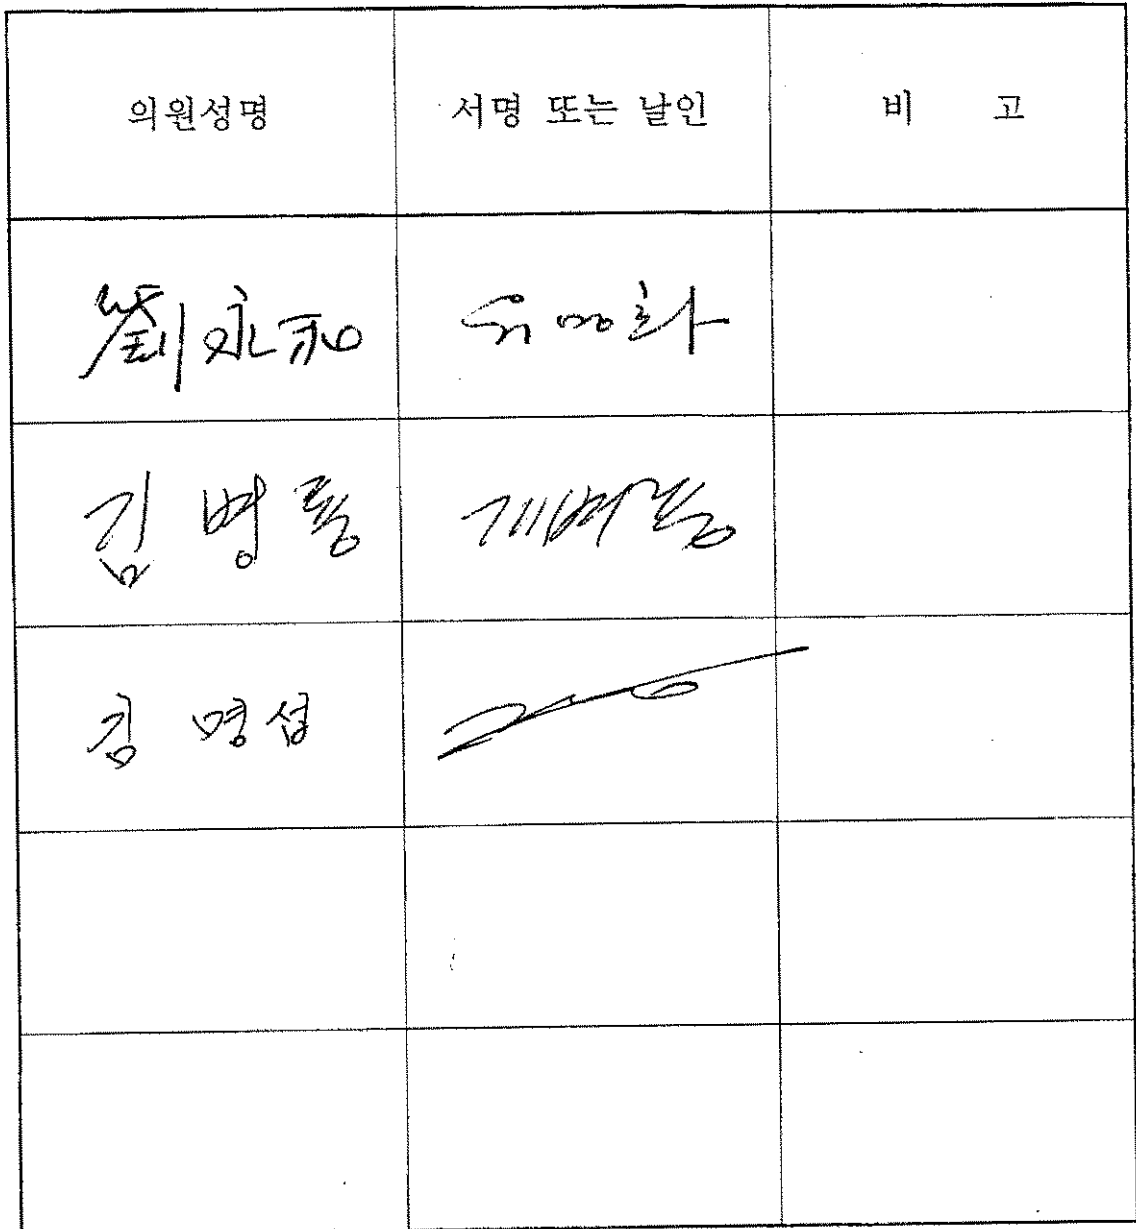 의원성명 서명 또는 날인 비 고
劉永和 유영화
김병풍
김명섭